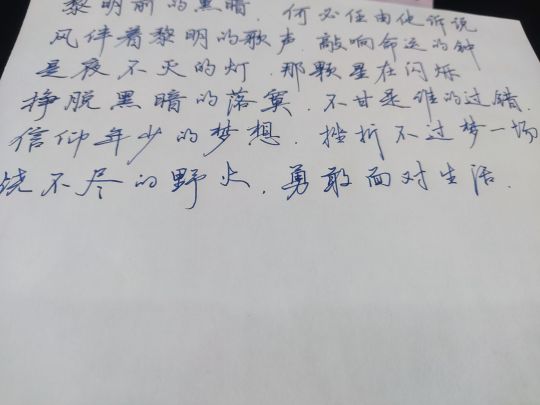 黎明前的黑暗. 何必任由他诉说
风伴着黎明的歌声. 敲响命运的钟
是夜不灭的灯. 那颗星在闪烁
挣脱黑暗的落寞. 不甘是谁的过错.
信仰年少的梦想. 挫折不过梦一场
烧不尽的野火. 勇敢面对生活.